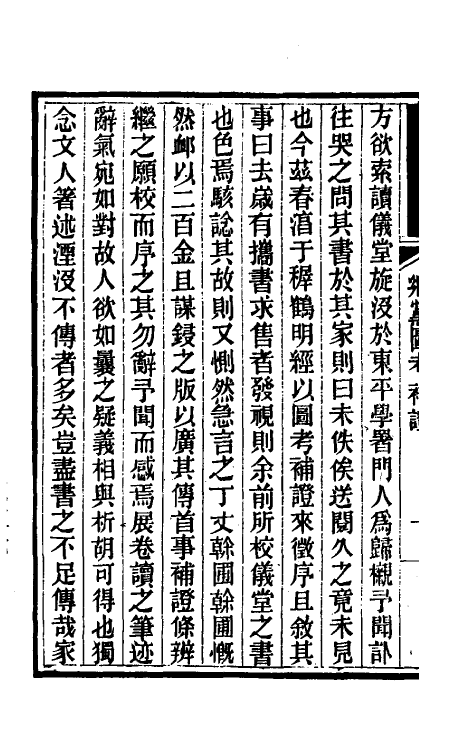 方欲索讀儀堂旋沒於東平學署門人爲歸櫬予聞訃
往哭之問其書於其家則曰未佚俟送閱久之竟未見
也今茲春淯于穉鶴明經以圖考補證來徵序且敘其
事曰去歲有攜書求售者發視則余前所校儀堂之書
也色焉駭諗其故則又惻然急言之丁丈榦圃榦圃慨
然衈以二百金且謀鋟之版以廣其傳首事補證條辨
繼之願校而序之其勿辭予聞而感焉展卷讀之筆迹
辭氣宛如對故人欲如曩之疑義相與析胡可得也獨
念文人著述湮沒不傳者多矣豈盡書之不足傳哉家
鄉黨圖考補證
一